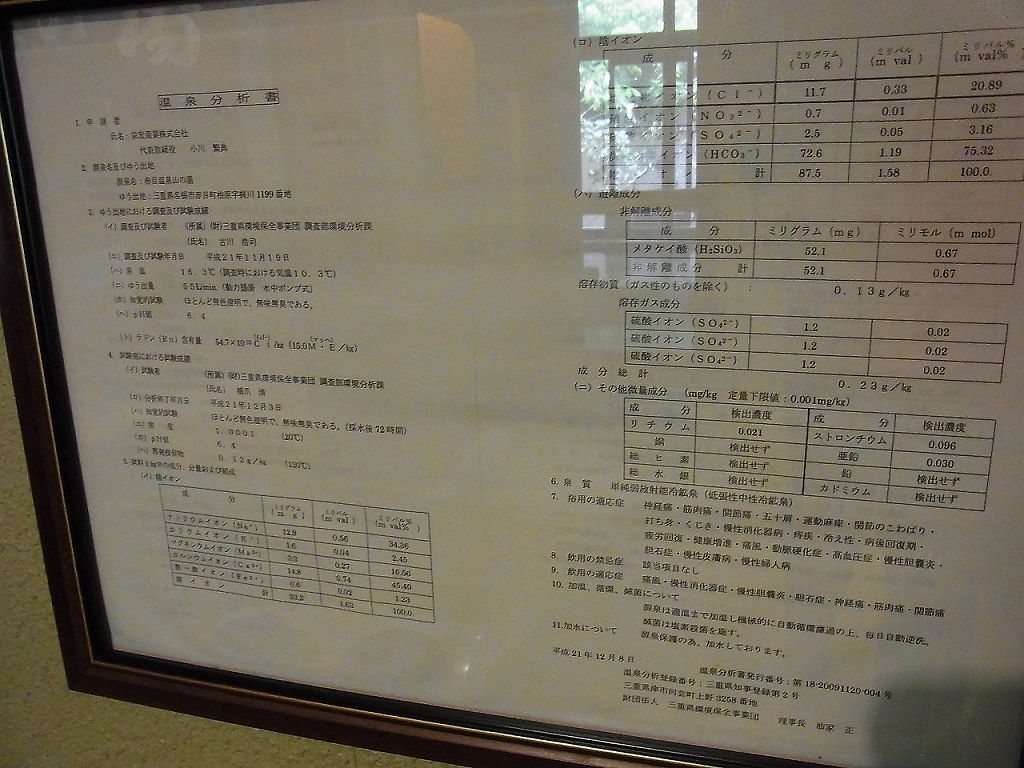 温泉分析書
1. 申請者
氏名：栄宏産業株式会社
代表取締役 小川 繁典
2. 源泉名及びゆう出地
源泉名：赤目温泉山の湯
ゆう出地：三重県名張市赤目町柏原字梶川1199番地
3. ゆう出地における調査及び試験成績
(イ) 調査及び試験者 (所属) (財)三重県環境保全事業団 調査部環境分析課
(氏名) 古川 浩司
(ロ) 調査及び試験年月日 平成21年11月19日
(ハ) 泉温 16.3℃ (調査時における気温10.3℃)
(ニ) ゆう出量 55L/min. (動力揚湯 水中ポンプ式)
(ホ) 知覚的試験 ほとんど無色澄明で、無味無臭である。
(ヘ) pH値 6.4
(ト) ラドン (Rn) 含有量 54.7×10⁻¹⁰Ci/kg (15.0M・E/kg)
4. 試験室における試験成績
(イ) 試験者 (所属) (財)三重県環境保全事業団 調査部環境分析課
(氏名) 福爪 清
(ロ) 分析終了年月日 平成21年12月3日
(ハ) 知覚的試験 ほとんど無色澄明で、無味無臭である。(採水後72時間)
(ニ) 密度 1.0001 (20℃)
(ホ) pH値 6.4
(ヘ) 蒸発残留物 0.12g/kg (130℃)
5. 試料1kg中の成分、分量および組成
(イ) 陽イオン
成分 ミリグラム (mg) ミリバル (m val) ミリバル% (m val%)
ナトリウムイオン (Na⁺) 12.9 0.56 34.36
カリウムイオン (K⁺) 1.6 0.04 2.45
マグネシウムイオン (Mg²⁺) 3.3 0.27 16.56
カルシウムイオン (Ca²⁺) 14.8 0.74 45.40
第一鉄イオン (Fe²⁺) 0.6 0.02 1.23
陽イオン計 33.2 1.63 100.0
(ロ) 陰イオン
成分 ミリグラム (mg) ミリバル (m val) ミリバル% (m val%)
イオン (Cl⁻) 11.7 0.33 20.89
イオン (NO₃²⁻) 0.7 0.01 0.63
イオン (SO₄²⁻) 2.5 0.05 3.16
(HCO₃⁻) 72.6 1.19 75.32
イオン計 87.5 1.58 100.0.
(ハ) 遊離成分
非解離成分
成分 ミリグラム (mg) ミリモル (m mol)
メタケイ酸 (H₂SiO₃) 52.1 0.67
非解離成分計 52.1 0.67
溶存物質 (ガス性のものを除く) ： 0.13g/kg
溶存ガス成分
硫酸イオン (SO₄²⁻) 1.2 0.02
硫酸イオン (SO₄²⁻) 1.2 0.02
硫酸イオン (SO₄²⁻) 1.2 0.02
成分総計 0.23g/kg
(ニ) その他微量成分 (mg/kg 定量下限値：0.001mg/kg)
成分 検出濃度 成分 検出濃度
リチウム 0.021 ストロンチウム 0.096
銅 検出せず 亜鉛 0.030
総ヒ素 検出せず 鉛 検出せず
総水銀 検出せず カドミウム 検出せず
6. 泉質 単純弱放射能冷鉱泉 (低張性中性冷鉱泉)
7. 浴用の適応症 神経痛・筋肉痛・関節痛・五十肩・運動麻痺・関節のこわばり・
打ち身・くじき・慢性消化器病・痔疾・冷え性・病後回復期・
疲労回復・健康増進・痛風・動脈硬化症・高血圧症・慢性胆嚢炎・
胆石症・慢性皮膚病・慢性婦人病
8. 飲用の禁忌症 該当項目なし
9. 飲用の適応症 痛風・慢性消化器症・慢性胆嚢炎・胆石症・神経痛・筋肉痛・関節痛
10. 加温、循環、滅菌について
源泉は適温まで加温し機械的に自動循環濾過の上、毎日自動逆洗。
滅菌は塩素殺菌を施す。
11.加水について 源泉保護の為、加水しております。
平成21年12月8日 温泉分析書発行番号：第18-20091120-004号
温泉分析登録番号：三重県知事登録第2号
三重県津市河芸町上野3258番地
財団法人 三重県環境保全事業団 理事長 油家 正